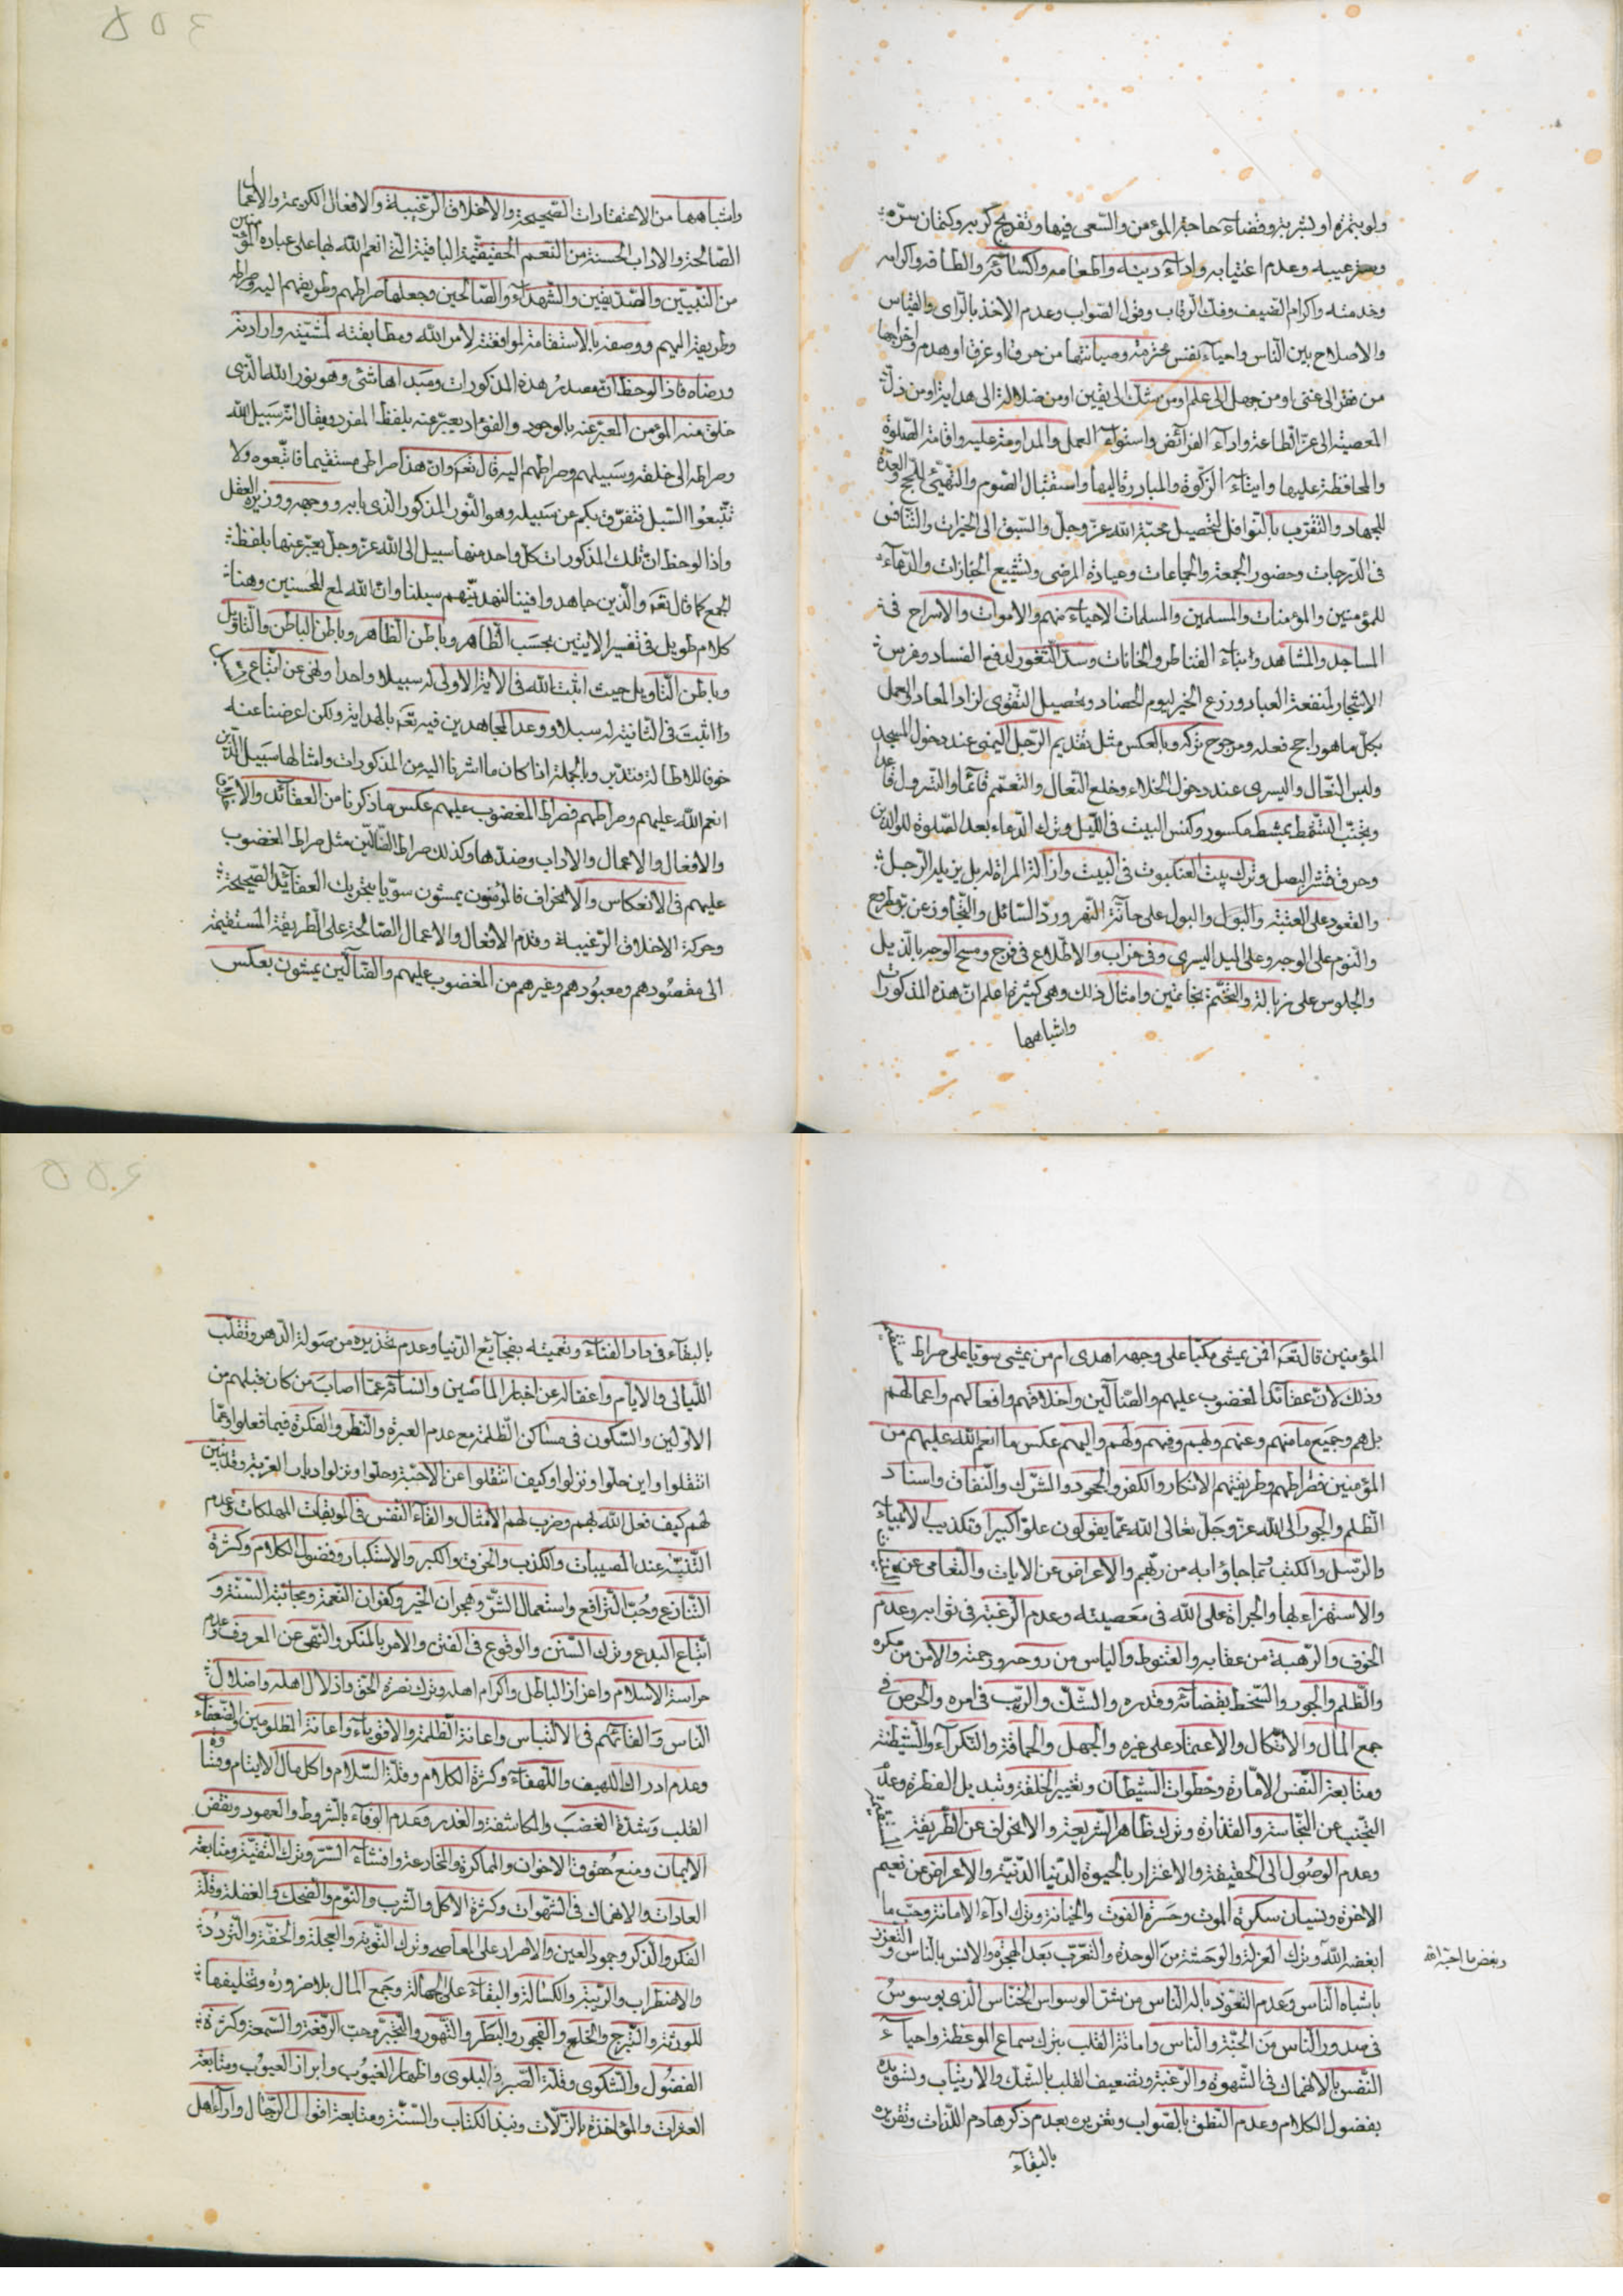 ولو بتمرة او بشربة وقضاء حاجة المؤمن والسعى فيها وتفريج كربه وكتمان سره
وستر عيبه وعدم اغتيابه واداء دينه واطعامه واكسائه والطافه واكرامه
وخدمته واكرام الضيف وفك الرقاب وقول الصواب وعدم الاخذ بالراى والقياس
والاصلاح بين الناس واحياء نفس محترمة وصيانتها من حرق او غرق او هدم واخراجها
من فقر الى غنى او من جهل الى علم او من شك الى يقين او من ضلالة الى هداية او من ذل
المعصية الى عز الطاعة واداء الفرائض واستواء العمل والمداومة عليه واقامة الصلوة
والمحافظة عليها وايتاء الزكوة والمبادرة اليها واستقبال الصوم والتهيئ للحج والعدة
للجهاد والتقرب بالنوافل لتحصيل محبة الله عز وجل والسبق الى الخيرات والتنافس
فى الدرجات وحضور الجمعة والجماعات وعيادة المرضى وتشييع الجنازات والدعاء
للمؤمنين والمؤمنات والمسلمين والمسلمات الاحياء منهم والاموات والاسراج فى
المساجد والمشاهد وبناء القناطر والخانات وسد الثغور لدفع الفساد وغرس
الاشجار لمنفعة العباد وزرع الخير ليوم الحصاد وتحصيل التقوى لزاد المعاد والعمل
بكل ما هو راجح فعله ومرجوح تركه وبالعكس مثل تقديم الرجل اليمنى عند دخول المسجد
ولبس النعال واليسرى عند دخول الخلاء وخلع النعال والتعمم قائما والتسرول قاعدا
وتجنب التمشط بمشط مكسور وكنس البيت فى الليل وترك الدعاء بعد الصلوة للوالدين
وحرق قشر البصل وترك بيت العنكبوت فى البيت
والقعود على العتبة والبول على حافة النهر ورد السائل والتجاوز عن
والنوم على الوجه وعلى اليد اليسرى وفى خراب والاطلاع فى فرج ومسح الوجه بالذيل
والجلوس على زبالة والتختم بخاتمين وامثال ذلك وهى كثيرة اعلم ان هذه المذكورات
واشباهها
واشباهها من الاعتقادات الصحيحة والاخلاق الرغيبة والافعال الكريمة والاعمال
الصالحة والاداب الحسنة من النعم الحقيقية الباقية التى انعم الله بها على عباده المؤمنين
من النبيين والصديقين والشهداء والصالحين وجعلها صراطهم وطريقهم اليه وصراطه
وطريقه اليهم ووصفه بالاستقامة لموافقته لامر الله ومطابقته لمشيته وارادته
ورضاه فاذا لوحظ ان مصدر هذه المذكورات ومبداها شئ وهو نور الله الذى
خلق منه المؤمن المعبر عنه بالوجود والفؤاد يعبر عنه بلفظ المفرد ويقال انه سبيل الله
وصراطه الى خلقه وسبيلهم وصراطهم اليه قال تعم وان هذا صراطى مستقيما فاتبعوه ولا
تتبعوا السبل فتفرق بكم عن سبيله وهو النور المذكور الذى بابه ووجهه ووزيره العقل
واذا لوحظ ان تلك المذكورات كل واحد منها سبيل الى الله عز وجل يعبر عنها بلفظ
الجمع كما قال تعم والذين جاهدوا فينا لنهدينهم سبلنا وان الله لمع المحسنين وهنا
كلام طويل فى تفسير الايتين بحسب الظاهر وباطن الظاهر وباطن الباطن والتاويل
وباطن التاويل حيث اثبت الله فى الاية الاولى له سبيلا واحدا ونهى عن اتباع
واثبت فى الثانية له سبلا ووعد المجاهدين فيه تعم بالهداية ولكن اعرضنا عنه
خوفا للاطالة فتدبر وبالجملة اذا كان ما اشرنا اليه من المذكورات وامثالها سبيل الذين
انعم الله عليهم وصراطهم فصراط المغضوب عليهم عكس ما ذكرنا من العقائد والاخلاق
والافعال والاعمال والاداب وضدها وكذلك صراط الضالين مثل صراط المغضوب
عليهم فى الانعكاس والانحراف فالمؤمنون يمشون سويا بتحريك العقائد الصحيحة
وحركة الاخلاق الرغيبة وقدم الافعال والاعمال الصالحة على الطريقة المستقيمة
الى مقصودهم ومعبودهم وغيرهم من المغضوب عليهم والضالين يمشون بعكس
المؤمنين قال تعم افمن يمشى مكبا على وجهه اهدى ام من يمشى سويا على صراط مستقيم
وذلك لان عقائد المغضوب عليهم والضالين واخلاقهم وافعالهم واعمالهم
بل هم وجميع ما منهم وعنهم ولهم وفيهم ولهم واليهم عكس ما انعم الله عليهم من
المؤمنين فصراطهم وطريقتهم الانكار والكفر والجحود والشرك والنفاق واسناد
الظلم والجور الى الله عز وجل تعالى الله عما يقولون علوا كبيرا وتكذيب الانبياء
والرسل والكتب وبما جاؤا به من ربهم والاعراض عن الايات والتعامى عن
والاستهزاء بها والجراة على الله فى معصيته وعدم الرغبة فى ثوابه وعدم
الخوف والرهبة من عقابه والقنوط والياس من روحه ورحمته والامن من مكره
والظلم والجور والسخط بقضائه وقدره والشك والريب فى امره والحرص فى
جمع المال والاتكال والاعتماد على غيره والجهل والحماقة والنكراء والشيطنة
ومتابعة النفس الامارة وخطوات الشيطان وتغيير الخلقة وتبديل الفطرة وعدم
التجنب عن النجاسة والقذارة وترك ظاهر الشريعة والانحراف عن الطريقة المستقيمة
وعدم الوصول الى الحقيقة والاغترار بالحيوة الدنيا الدنية والاعراض عن نعيم
الاخرة ونسيان سكرة الموت وحسرة الفوت والخيانة وترك اداء الامانة وحب ما
ابغض الله وترك العزلة والوحشة من الوحدة والتعرب بعد الهجرة والانس بالناس والتعزز
وبغض ما احبه الله
باشباه الناس وعدم التعوذ باله الناس من شر الوسواس الخناس الذى يوسوس
فى صدور الناس من الجنة والناس واماتة القلب بترك سماع الموعظة واحياء
النفس بالانهماك فى الشهوة والرغبة وتضعيف القلب بالشك والارتياب وتسويده
بفضول الكلام وعدم النطق بالصواب وتغريره بعدم ذكر هادم اللذات وتقريره
بالبقاء
بالبقاء فى دار الفناء وتعميته بفجايع الدنيا وعدم تحذيره من صولة الدهر وتقلب
الليالى والايام واغفاله عن اخبار الماضين عما اصاب من كان قبلهم من
الاولين والسكون فى مساكن الظلمة مع عدم العبرة والنظر والفكرة فيما فعلوا وعما
انتقلوا واين حلوا ونزلوا وكيف انتقلوا عن الاحبة وحلوا ونزلوا ديار الغربة وقد تبين
لهم كيف فعل الله بهم وضرب لهم الامثال والقاء النفس فى الموبقات المهلكات وعدم
التنبه عند المصيبات والكذب والخرق والكبر والاستكبار وفضول الكلام وكثرة
التنازع وحب الترافع واستعمال الشر وهجران الخير وكفران النعمة ومجانبة السنة و
اتباع البدع وترك السنن والوقوع فى الفتن والامر بالمنكر والنهى عن المعروف وعدم
حراسة الاسلام واعزاز الباطل واكرام اهله وترك نصرة الحق واذلال اهله واضلال
الناس والقائهم فى الالتباس واعانة الظلمة والاقوياء واعانة المظلومين والضعفاء
وعدم ادراك اللهيف واللهفاء وكثرة الكلام وقلة السلام واكل مال الايتام وقساوة
القلب وشدة الغضب والمكاشفة والغدر وعدم الوفاء بالشروط والعهود ونقض
الايمان ومنع حقوق الاخوان والمماكرة والمخادعة وافشاء السر وترك التقية ومتابعة
العادات والانهماك فى الشهوات وكثرة الاكل والشرب والنوم والضحك والغفلة وقلة
الفكر والذكر وجمود العين والاصرار على المعاصى وترك التوبة والعجلة والخفة والتردد
والاضطراب والريبة والكسالة والبقاء على الجهالة وجمع المال بلا ضرورة وتخليفها
للورثة والتبرج والخلع والفجور والبطر والتهور والتجبر وحب الرفعة والسمعة وكثرة
الفضول والشكوى وقلة الصبر فى البلوى واظهار الغيوب وابراز العيوب ومتابعة
العثرات والمؤاخذة بالزلات ونبذ الكتاب والسنة ومتابعة اقوال الرجال وآراء اهل